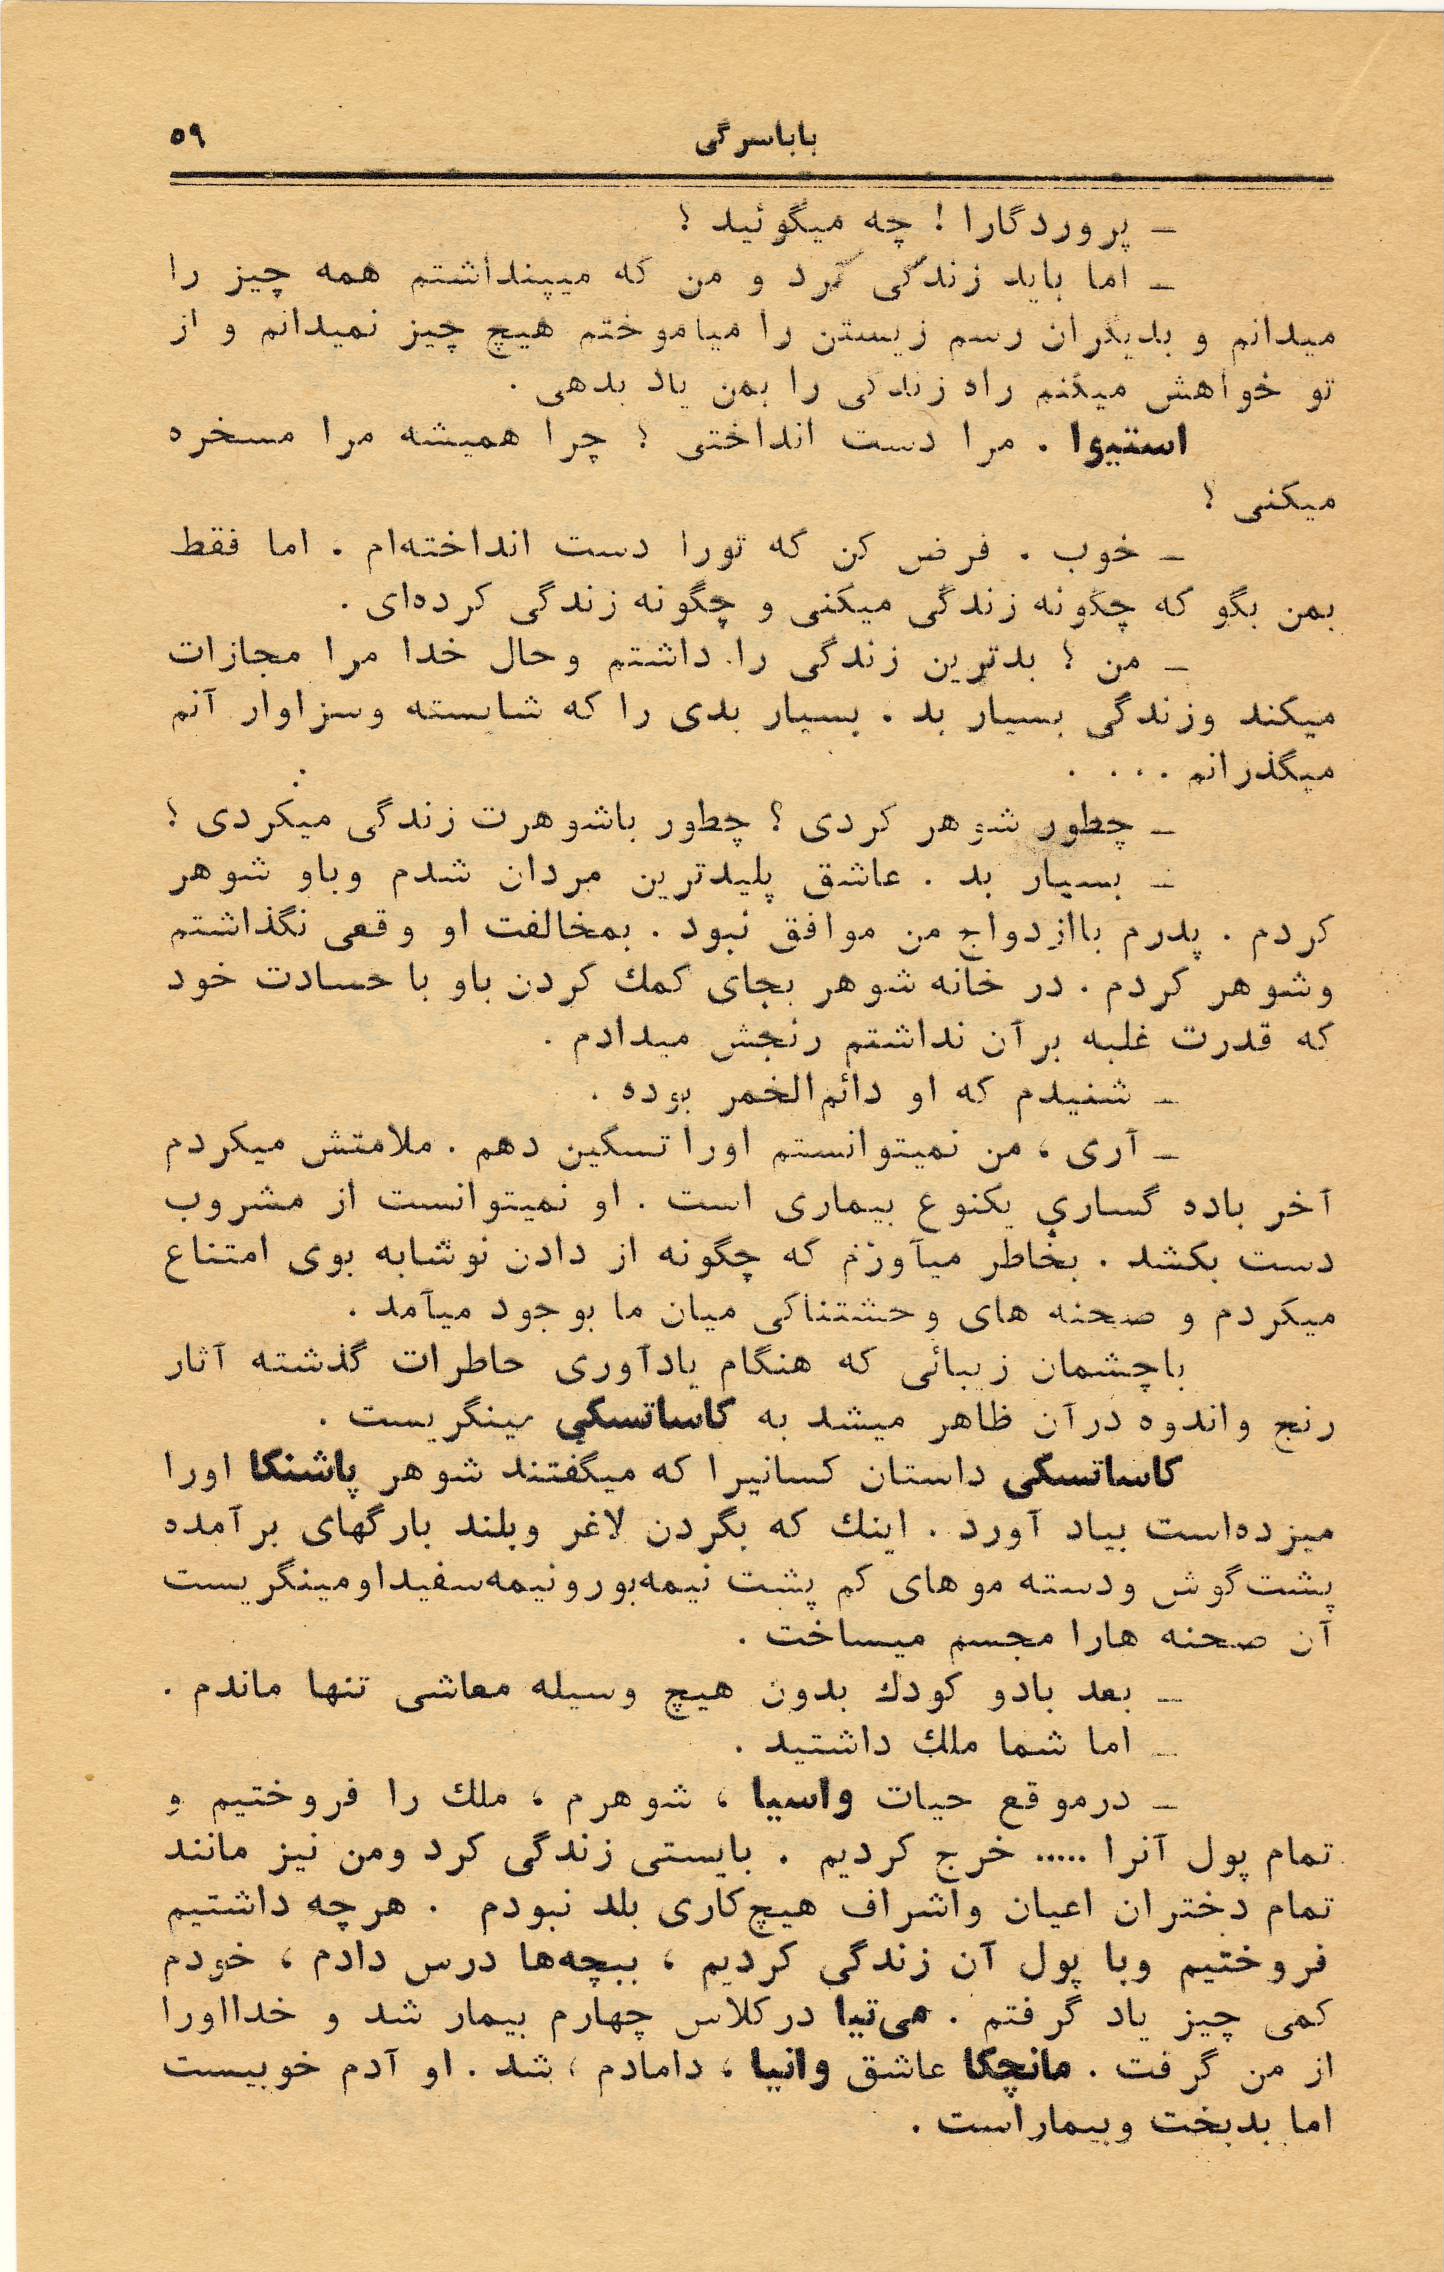 باباسرگی ۵۹
ـ پروردگارا ! چه میگوئید ؟
ـ اما باید زندگی کرد و من که میپنداشتم همه چیز را
میدانم و بدیگران رسم زیستن را میاموختم هیچ چیز نمیدانم و از
تو خواهش میکنم راه زندگی را بمن یاد بدهی .
استیوا . مرا دست انداختی ؟ چرا همیشه مرا مسخره
میکنی ؟
ـ خوب . فرض کن که تورا دست انداخته‌ام . اما فقط
بمن بگو که چگونه زندگی میکنی و چگونه زندگی کرده‌ای .
ـ من ؟ بدترین زندگی را داشتم وحال خدا مرا مجازات
میکند وزندگی بسیار بد . بسیار بدی را که شایسته وسزاوار آنم
میگذرانم . . . .
ـ چطور شوهر کردی ؟ چطور باشوهرت زندگی میکردی ؟
ـ بسیار بد . عاشق پلیدترین مردان شدم وباو شوهر
کردم . پدرم باازدواج من موافق نبود . بمخالفت او وقعی نگذاشتم
وشوهر کردم . در خانه شوهر بجای کمك کردن باو با حسادت خود
که قدرت غلبه برآن نداشتم رنجش میدادم .
ـ شنیدم که او دائم‌الخمر بوده .
ـ آری ، من نمیتوانستم اورا تسکین دهم . ملامتش میکردم
آخر باده گساري یکنوع بیماری است . او نمیتوانست از مشروب
دست بکشد . بخاطر میآورم که چگونه از دادن نوشابه بوی امتناع
میکردم و صحنه های وحشتناکی میان ما بوجود میآمد .
باچشمان زیبائی که هنگام یادآوری خاطرات گذشته آثار
رنج واندوه درآن ظاهر میشد به کاساتسکي مینگریست .
کاساتسکی داستان کسانیرا که میگفتند شوهر پاشنکا اورا
میزده‌است بیاد آورد . اینك که بگردن لاغر وبلند بارگهای برآمده
پشت‌گوش ودسته موهای کم پشت نیمه‌بورونیمه‌سفیداومینگریست
آن صحنه هارا مجسم میساخت .
ـ بعد بادو کودك بدون هیچ وسیله معاشی تنها ماندم .
ـ اما شما ملك داشتید .
ـ درموقع حیات واسیا ، شوهرم ، ملك را فروختیم و
تمام پول آنرا ..... خرج کردیم . بایستی زندگی کرد ومن نیز مانند
تمام دختران اعیان واشراف هیچ‌کاری بلد نبودم . هرچه داشتیم
فروختیم وبا پول آن زندگی کردیم ، ببچه‌ها درس دادم ، خودم
کمی چیز یاد گرفتم . می‌تیا درکلاس چهارم بیمار شد و خدااورا
از من گرفت . مانچکا عاشق وانیا ، دامادم ، شد . او آدم خوبیست
اما بدبخت وبیماراست .